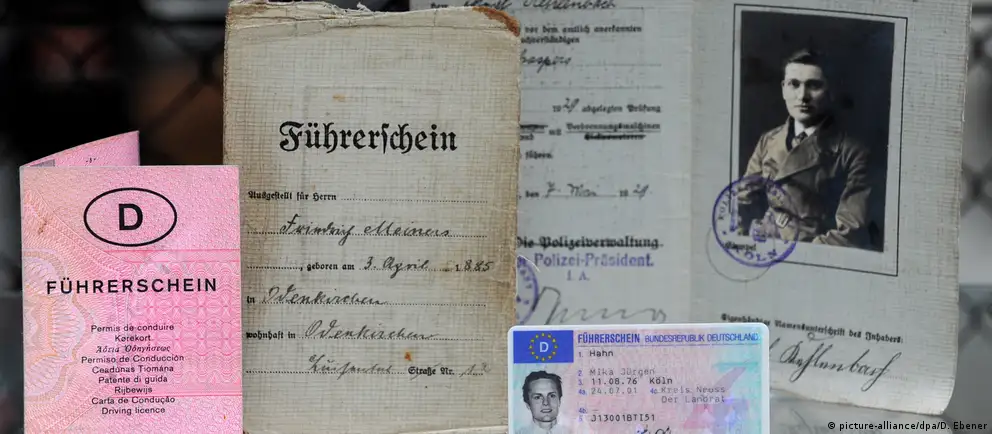 D
FÜHRERSCHEIN
Permis de conduire
Kørekort
Άδεια Οδηγήσεως
Permiso de Conducción
Ceadúnas Tiomána
Patente di guida
Rijbewijs
Carta de Condução
Driving licence
Führerschein
Ausgestellt für Herrn
Friedrich Meiners
, geboren am 3. April 1885
in Odenkirchen
wohnhaft in Odenkirchen
Straße Nr. 12
vor dem amtlich anerkannten
19 29 abgelegten Prüfung
mit Verbrennungsmaschinen
führen.
den 7. Mai 19 29
Die Polizeiverwaltung
Polizei-Präsident.
I. A.
KÖLN
Eigenhändige Namensunterschrift des Inhabers:
Kehlenbach
D
FÜHRERSCHEIN BUNDESREPUBLIK DEUTSCHLAND
1. Hahn
2. Mika Jürgen
3. 11.08.76 Köln
4a. 24.07.01 4c. Kreis Neuss
Der Landrat
4b. –
5. J13001BTI51
© picture-alliance/dpa/D. Ebener